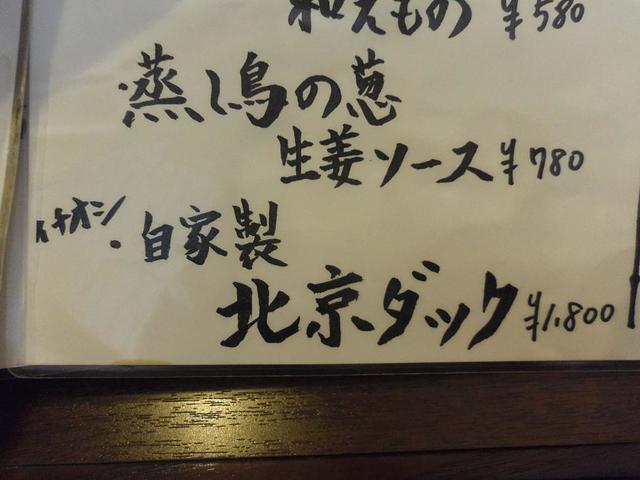 和えもの ¥580
蒸し鳥の葱
生姜ソース ¥780
イチオシ!
・自家製
北京ダック ¥1,800